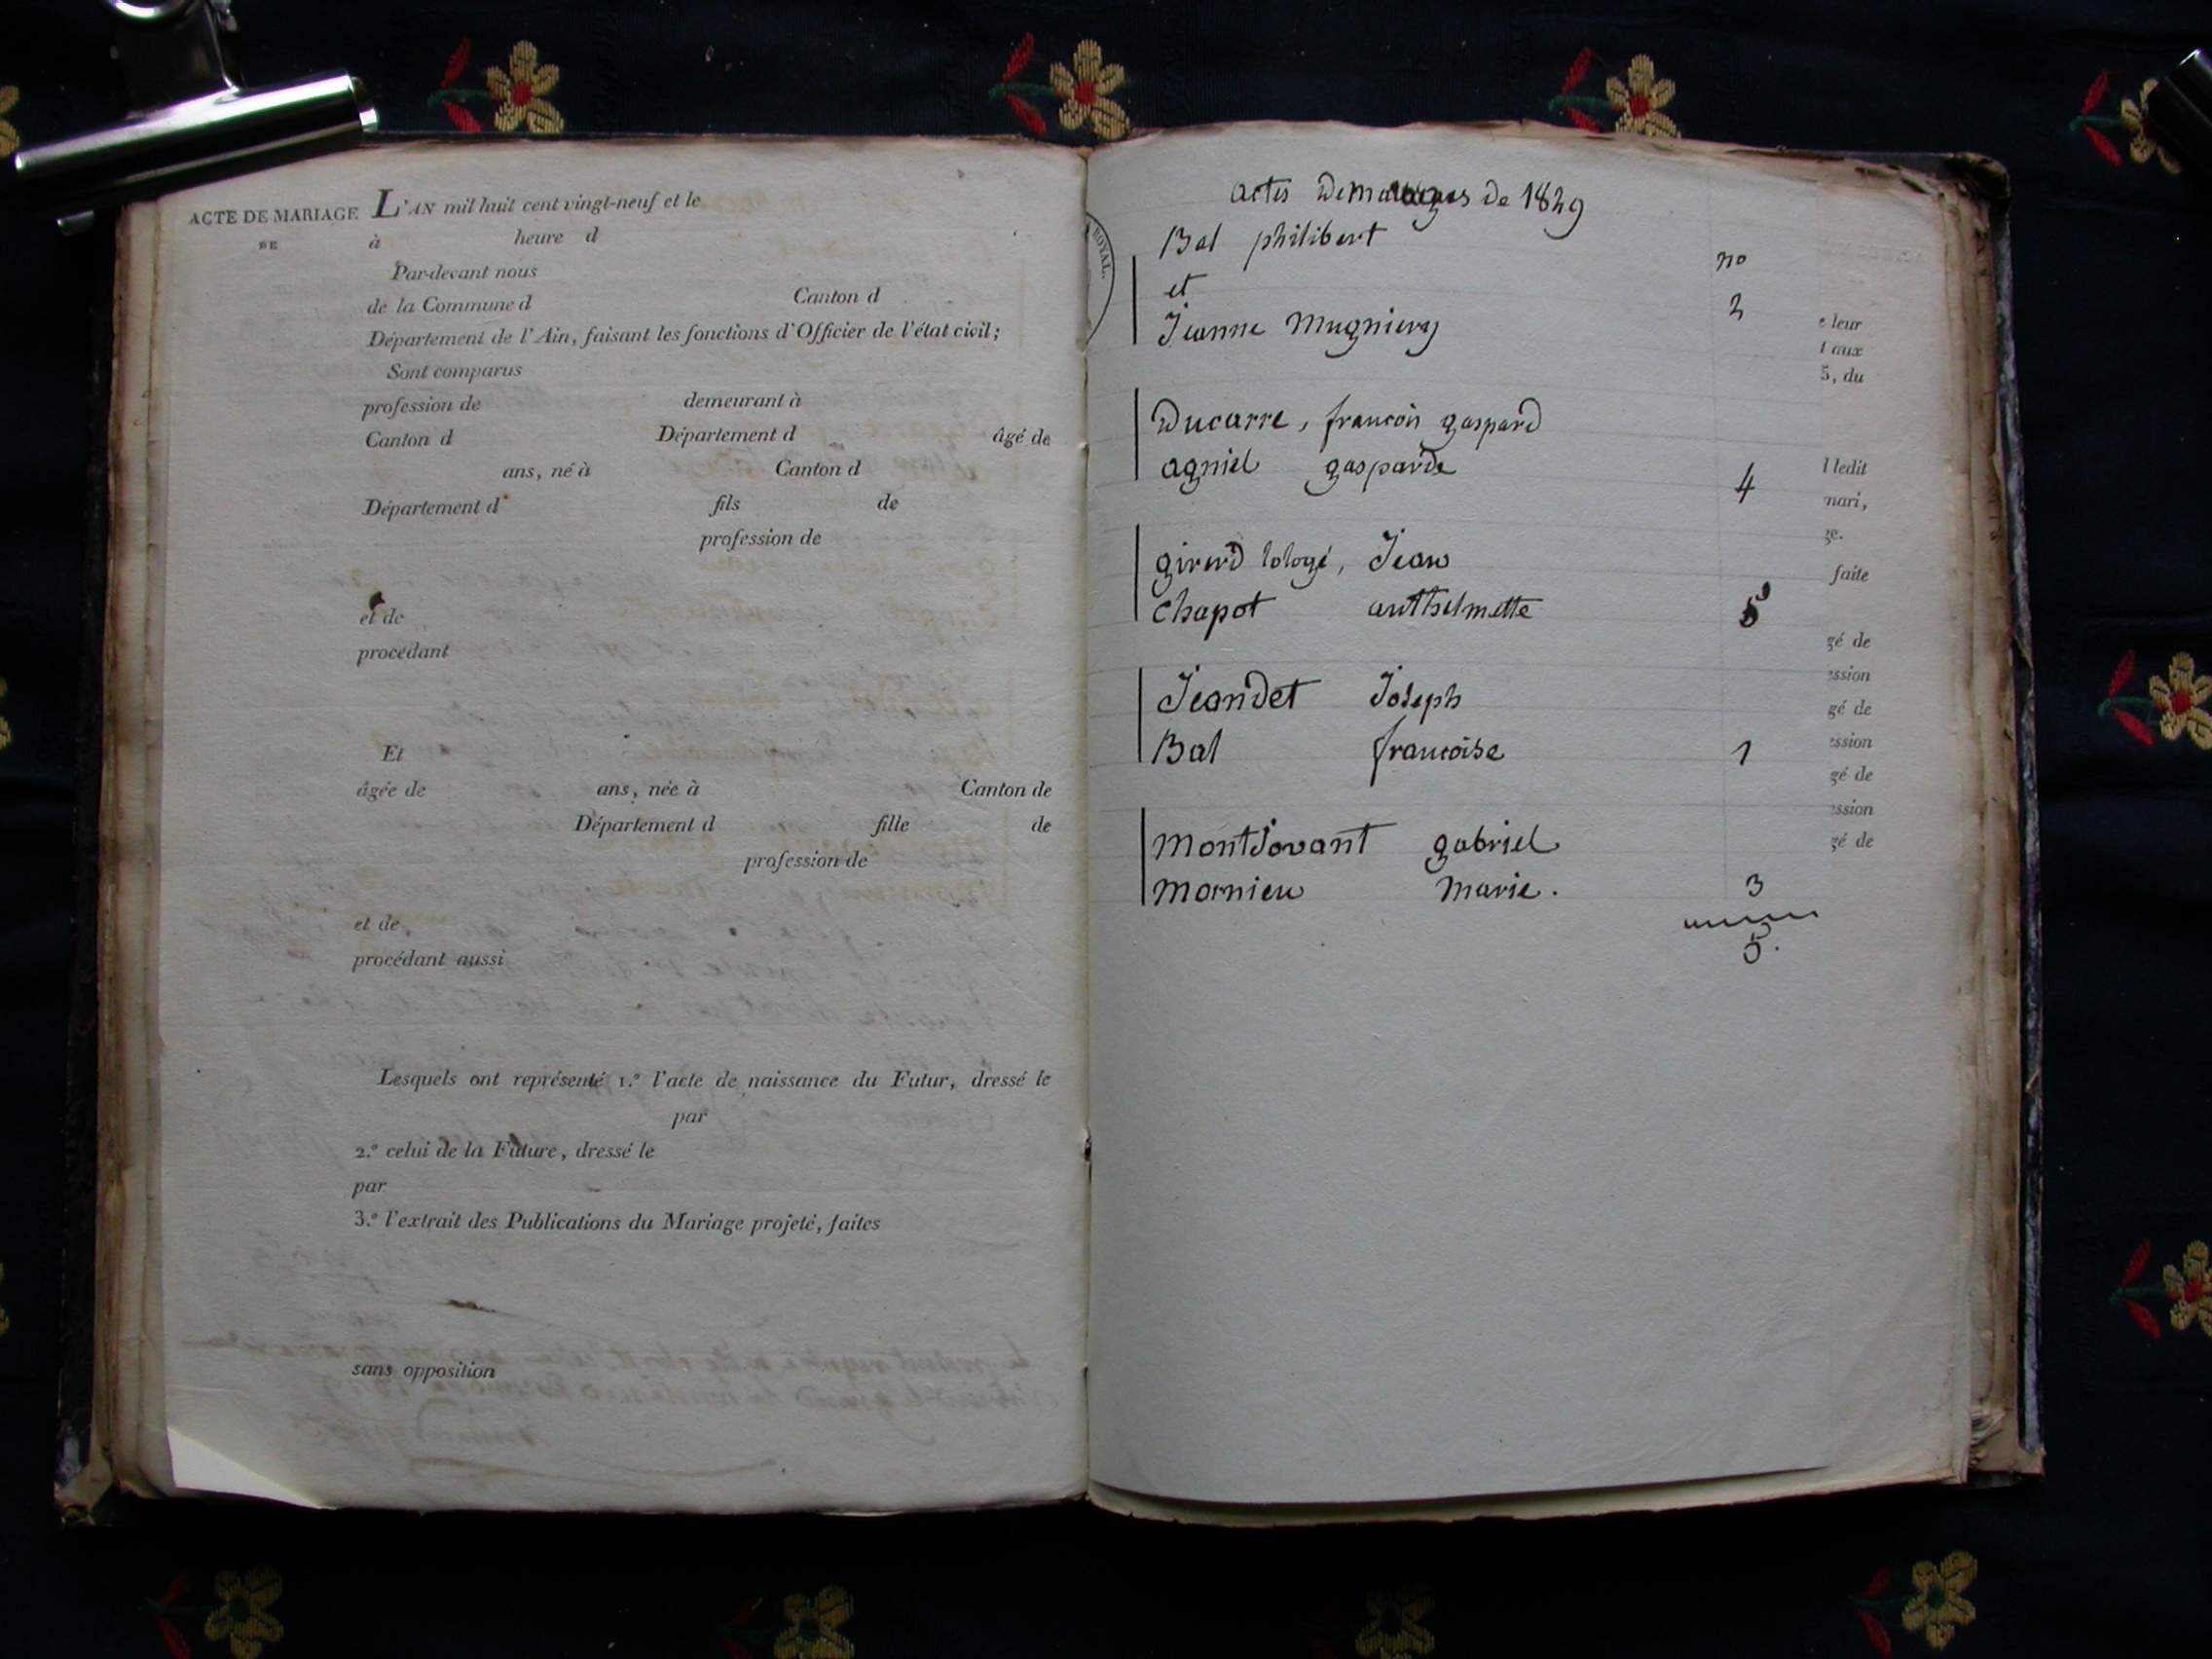 ACTE DE MARIAGE L'AN mil huit cent vingt-neuf et le
DE à heure d
Par-devant nous
de la Commune d Canton d
Département de l'Ain, faisant les fonctions d'Officier de l'état civil;
Sont comparus
profession de demeurant à
Canton d Département d âgé de
ans, né à Canton d
Département d fils de
profession de
et de
procédant
Et
âgée de ans, née à Canton de
Département d fille de
profession de
et de
procédant aussi
Lesquels ont représenté 1.º l'acte de naissance du Futur, dressé le
par
2.º celui de la Future, dressé le
par
3.º l'extrait des Publications du Mariage projeté, faites
sans opposition
ROYAL.
actes de mariages de 1829
Bal philibert
no
et
2
Jeanne Mugniery
Ducarre, francois gaspard
agniel gasparde
4
girerd, Jean
Chapot anthelmette 5
Jeandet Joseph
Bal francoise 1
montJovant gabriel
mornieu marie. 3
5.
e leur
t aux
5, du
l ledit
mari,
ge.
faite
gé de
ession
gé de
ession
gé de
ession
gé de